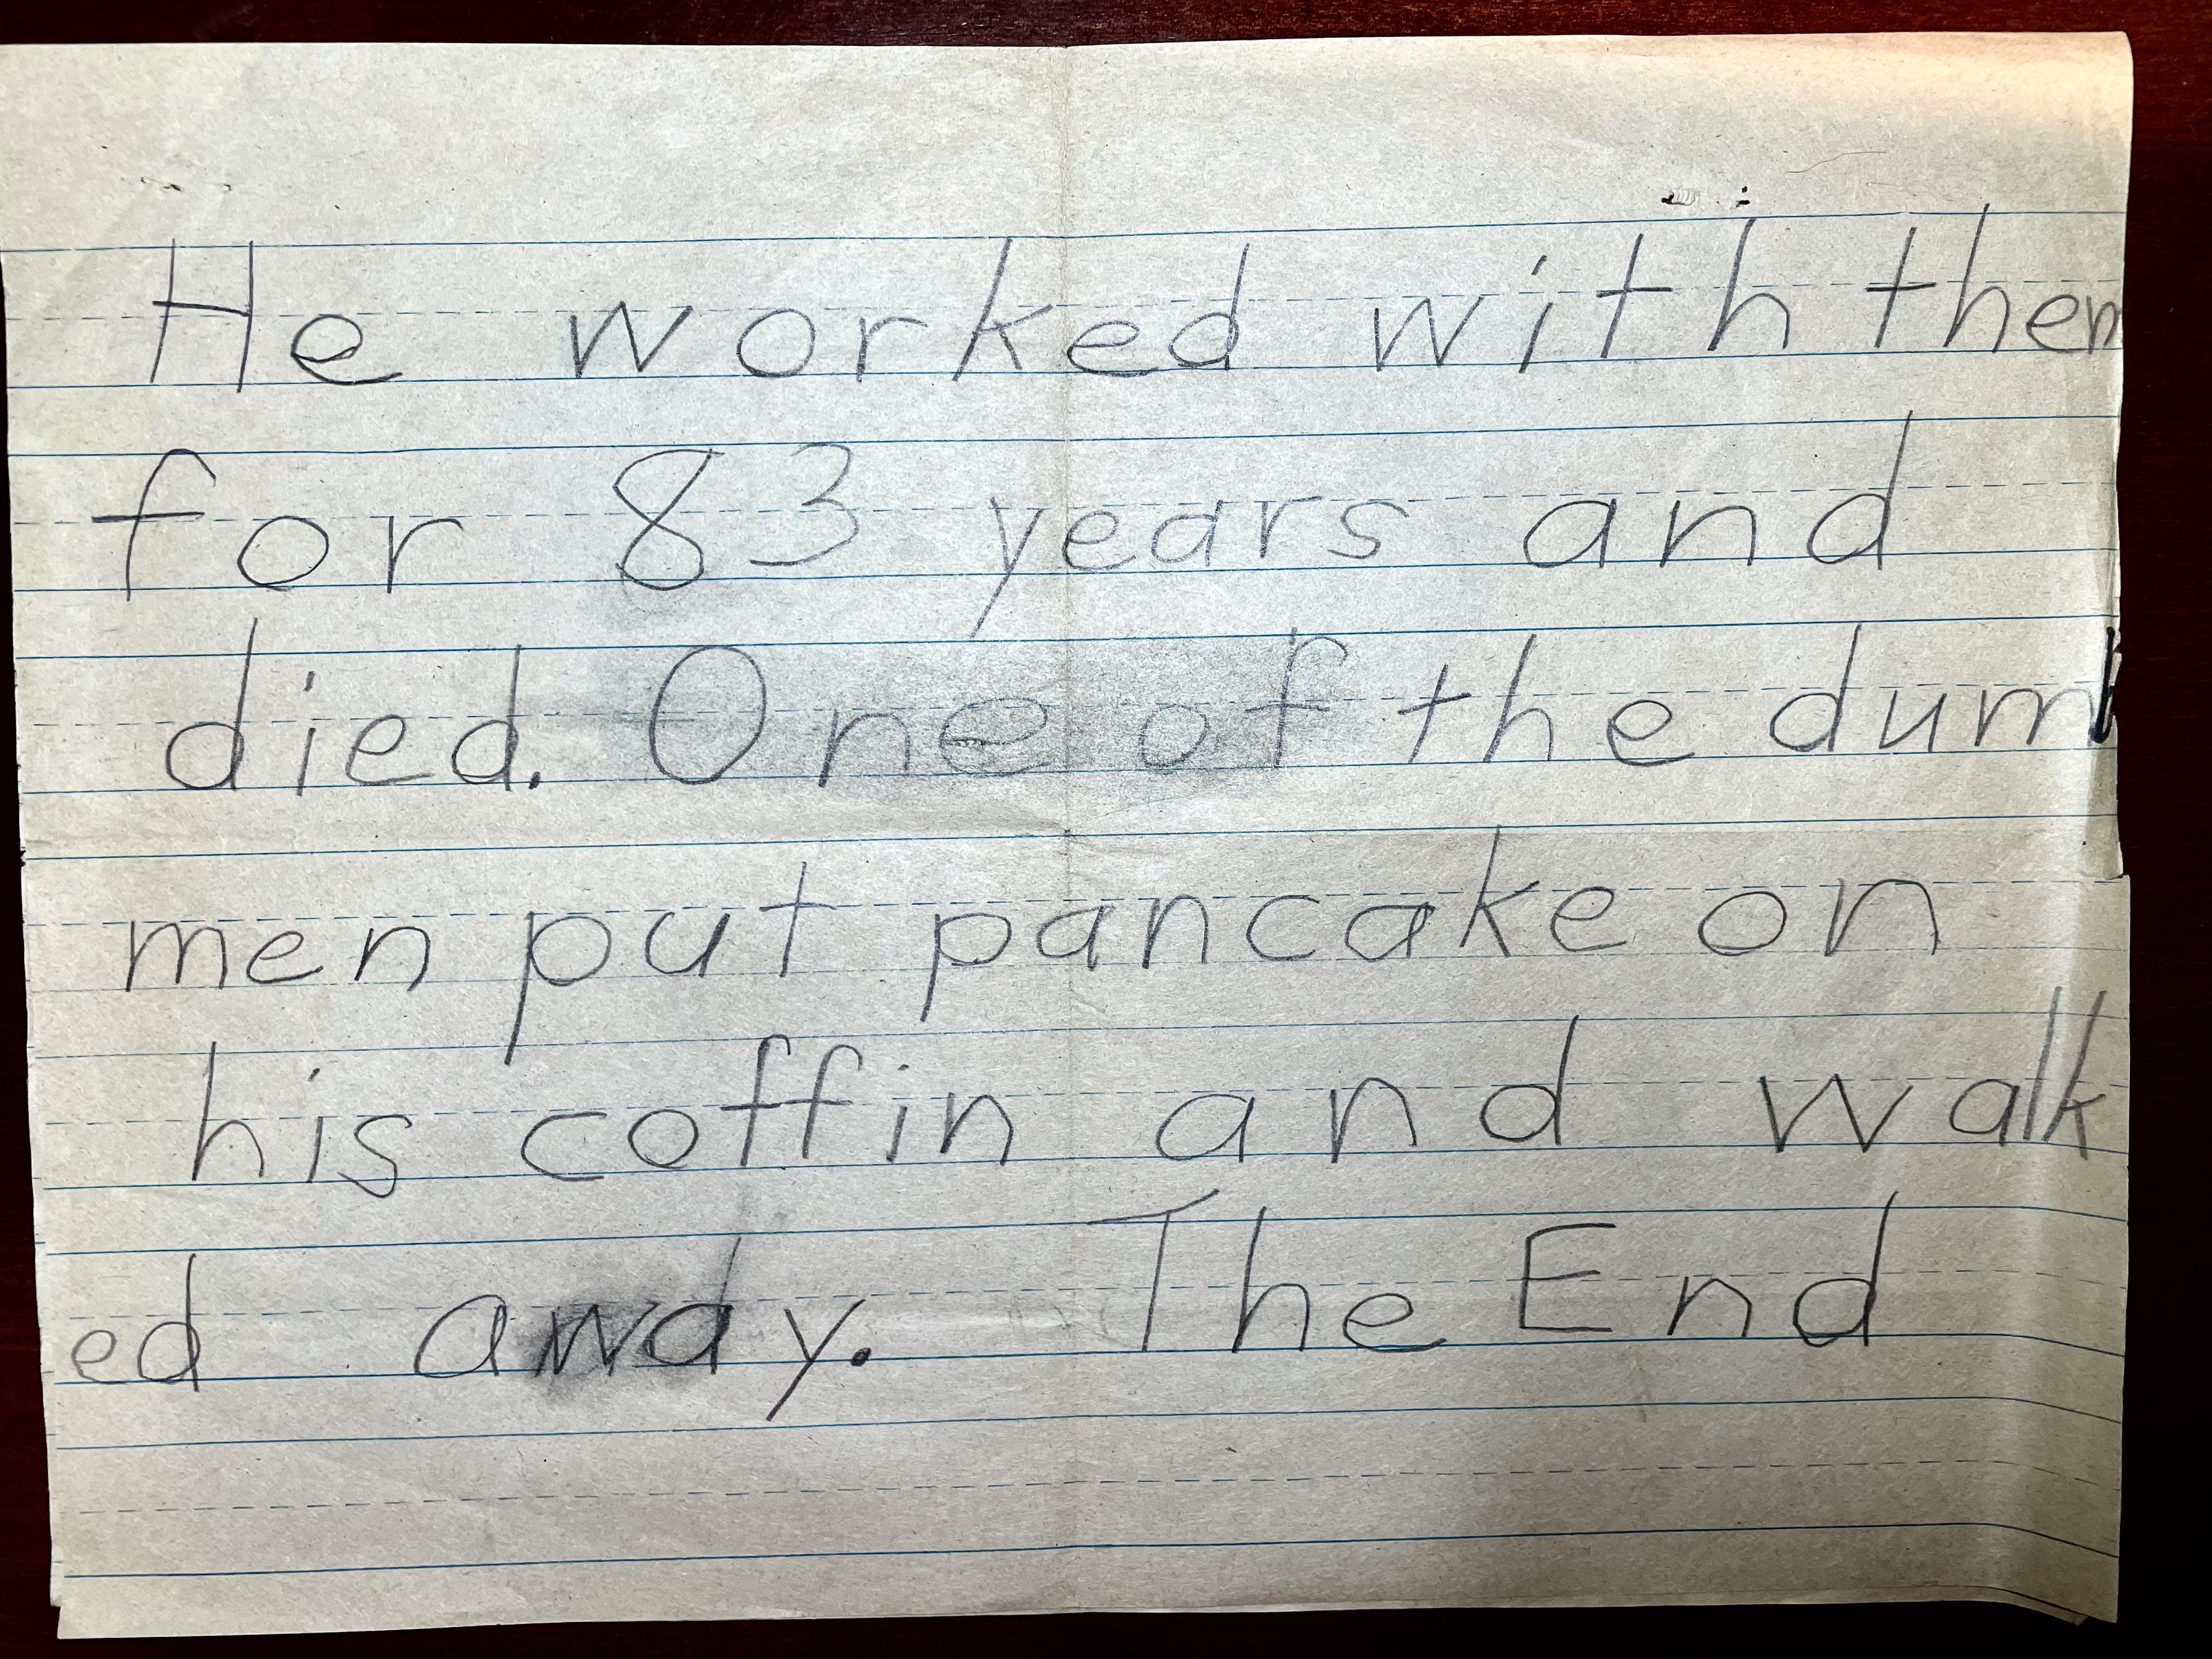 He worked with them
for 83 years and
died. One of the dumb
men put pancake on
his coffin and walk
ed away. The End